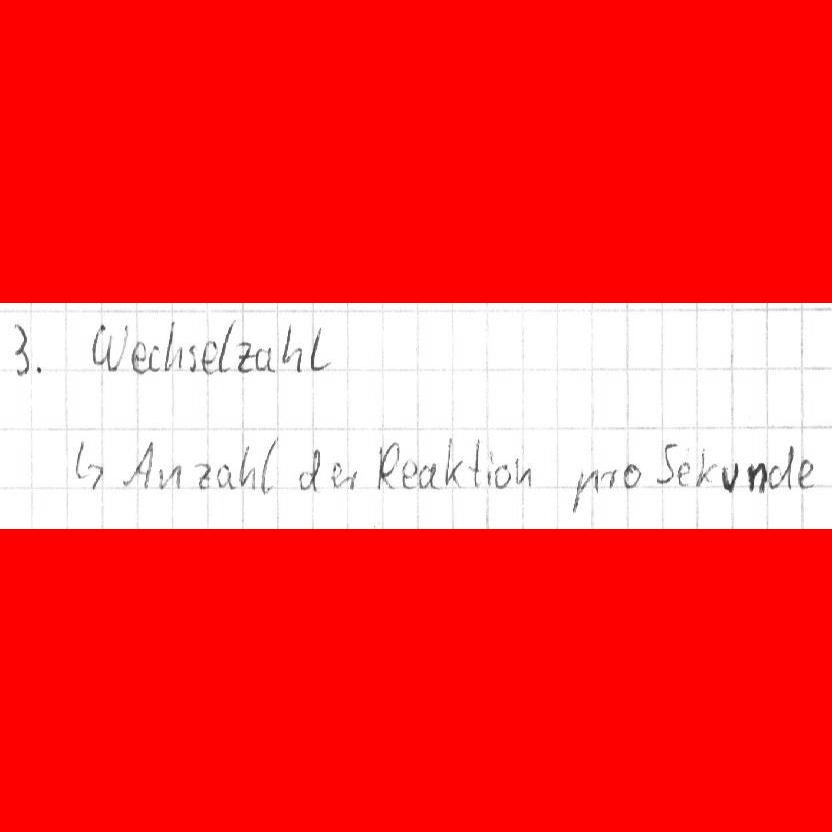 3. Wechselzahl
↳ Anzahl der Reaktion pro Sekunde